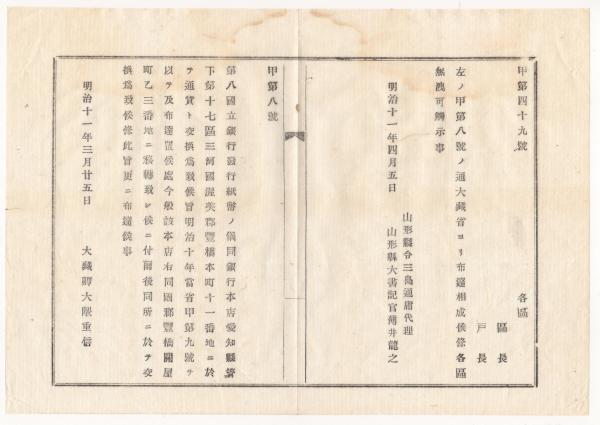 甲第四十九號
各區
區長
戸長
左ノ甲第八號ノ通大藏省ヨリ布達相成候條各區
無洩可觸示事
明治十一年四月五日
山形縣令三島通庸代理
山形縣大書記官薄井龍之
甲第八號
第八國立銀行發行紙幣ノ儀同銀行本店愛知縣管
下第十七區三河國渥美郡豐橋本町十一番地ニ於
テ通貨ト交換爲致候旨明治十年當省甲第九號ヲ
以テ及布達置候處今般該本店右同國郡豐橋關屋
町乙三番地ニ移轉致シ候ニ付爾後同所ニ於テ交
換爲致候條此旨更ニ布達候事
明治十一年三月廿五日
大藏卿大隈重信